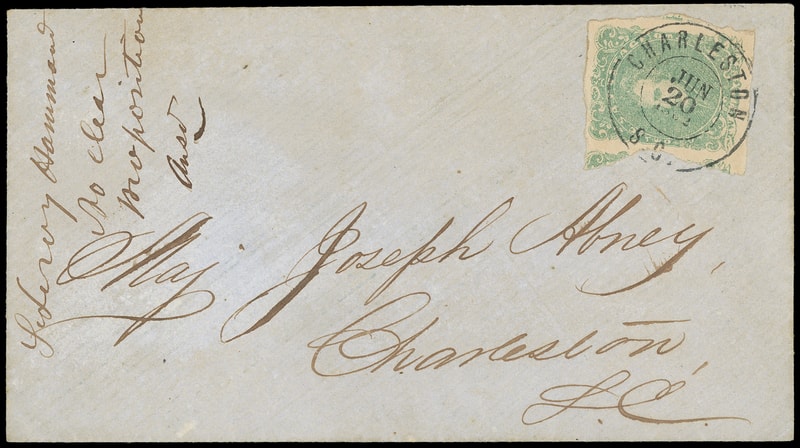 CHARLESTON
JUN
20
S.C.
Hammond
No clear
proposition
Ansd
Maj. Joseph Abney,
Charleston,
S.C.